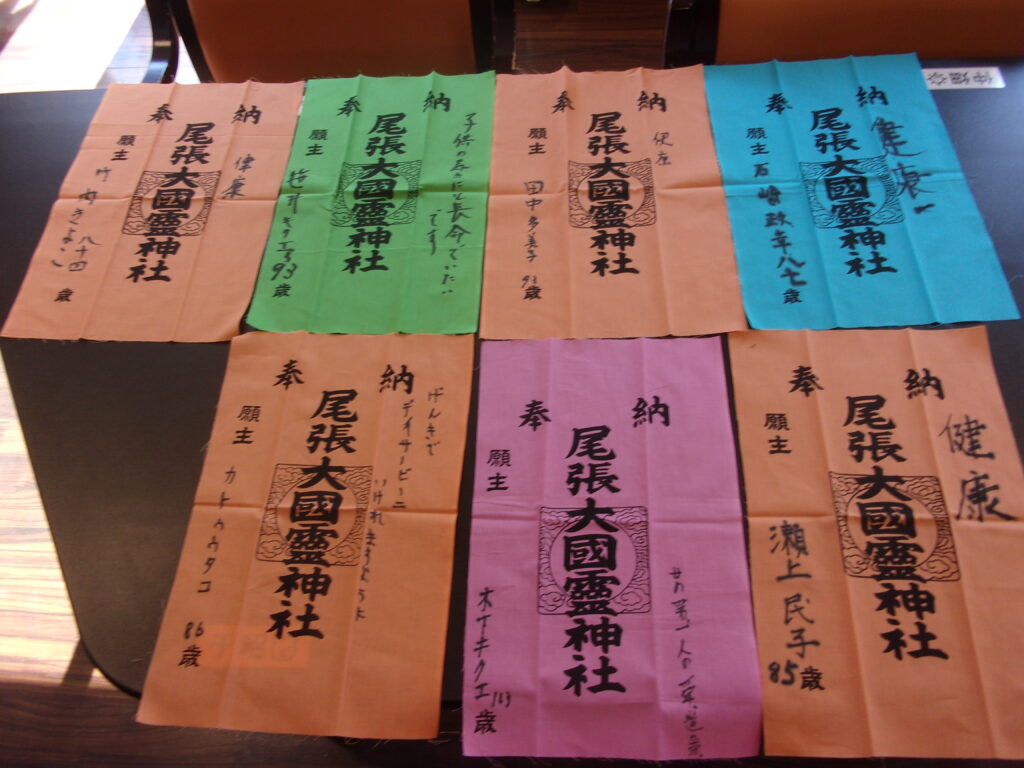 奉納
健康
尾張大國霊神社
願主 竹内きよこ 八十四歳
奉納
子供の為にと長命でいたいです
尾張大國霊神社
願主 93歳
奉納
尾張大國霊神社
願主 田中多美子 93歳
奉納
健康
尾張大國霊神社
願主 八七歳
奉納
げんきで
デイサービスニ
いけれますように
尾張大國霊神社
願主 カトウウタコ 86歳
奉納
尾張大國霊神社
願主 キクエ 103歳
奉納
健康
尾張大國霊神社
願主 瀬上民子 85歳